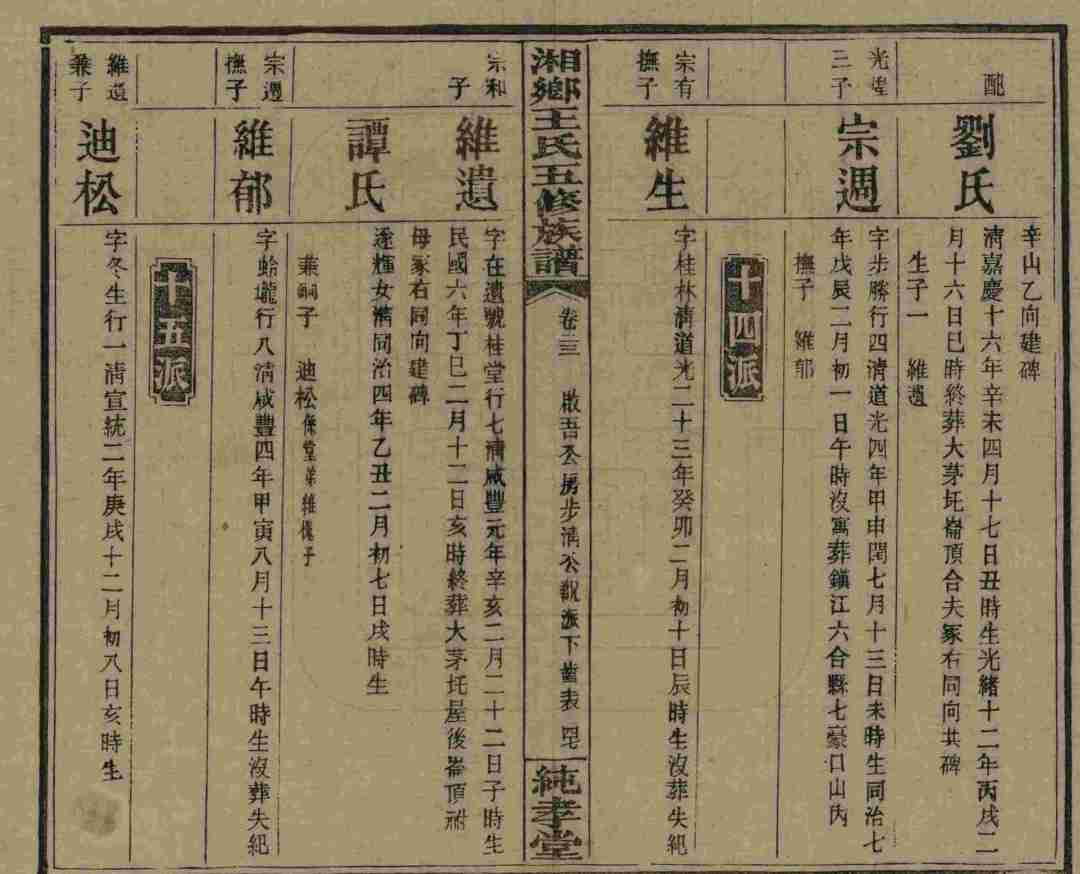 辛山乙向建碑
配
劉氏
清嘉慶十六年辛未四月十七日丑時生光緒十二年丙戌二
月十六日巳時終葬大茅坵崙頂合夫冢右同向共碑
生子一 維遇
光煌
三子
宗週
字步勝行四清道光四年甲申閏七月十三日未時生同治七
年戊辰二月初一日午時沒寓葬鎮江六合縣七豪口山內
撫子 維郁
十四派
宗有
撫子
維生
字桂林清道光二十三年癸卯二月初十日辰時生沒葬失紀
湘鄉王氏五修族譜
卷三
啟吾公房步清公說派下齒表
純孝堂
宗和
子
維遺
字在遺號桂堂行七清咸豐元年辛亥二月二十二日子時生
民國六年丁巳二月十二日亥時終葬大茅坵屋後崙頂祔
母冢右同向建碑
譚氏
逢輝女清同治四年乙丑二月初七日戌時生
兼嗣子 迪松係堂弟維儀子
宗週
撫子
維郁
字蛤壠行八清咸豐四年甲寅八月十三日午時生沒葬失紀
十五派
維遺
兼子
迪松
字冬生行一清宣統二年庚戌十二月初八日亥時生